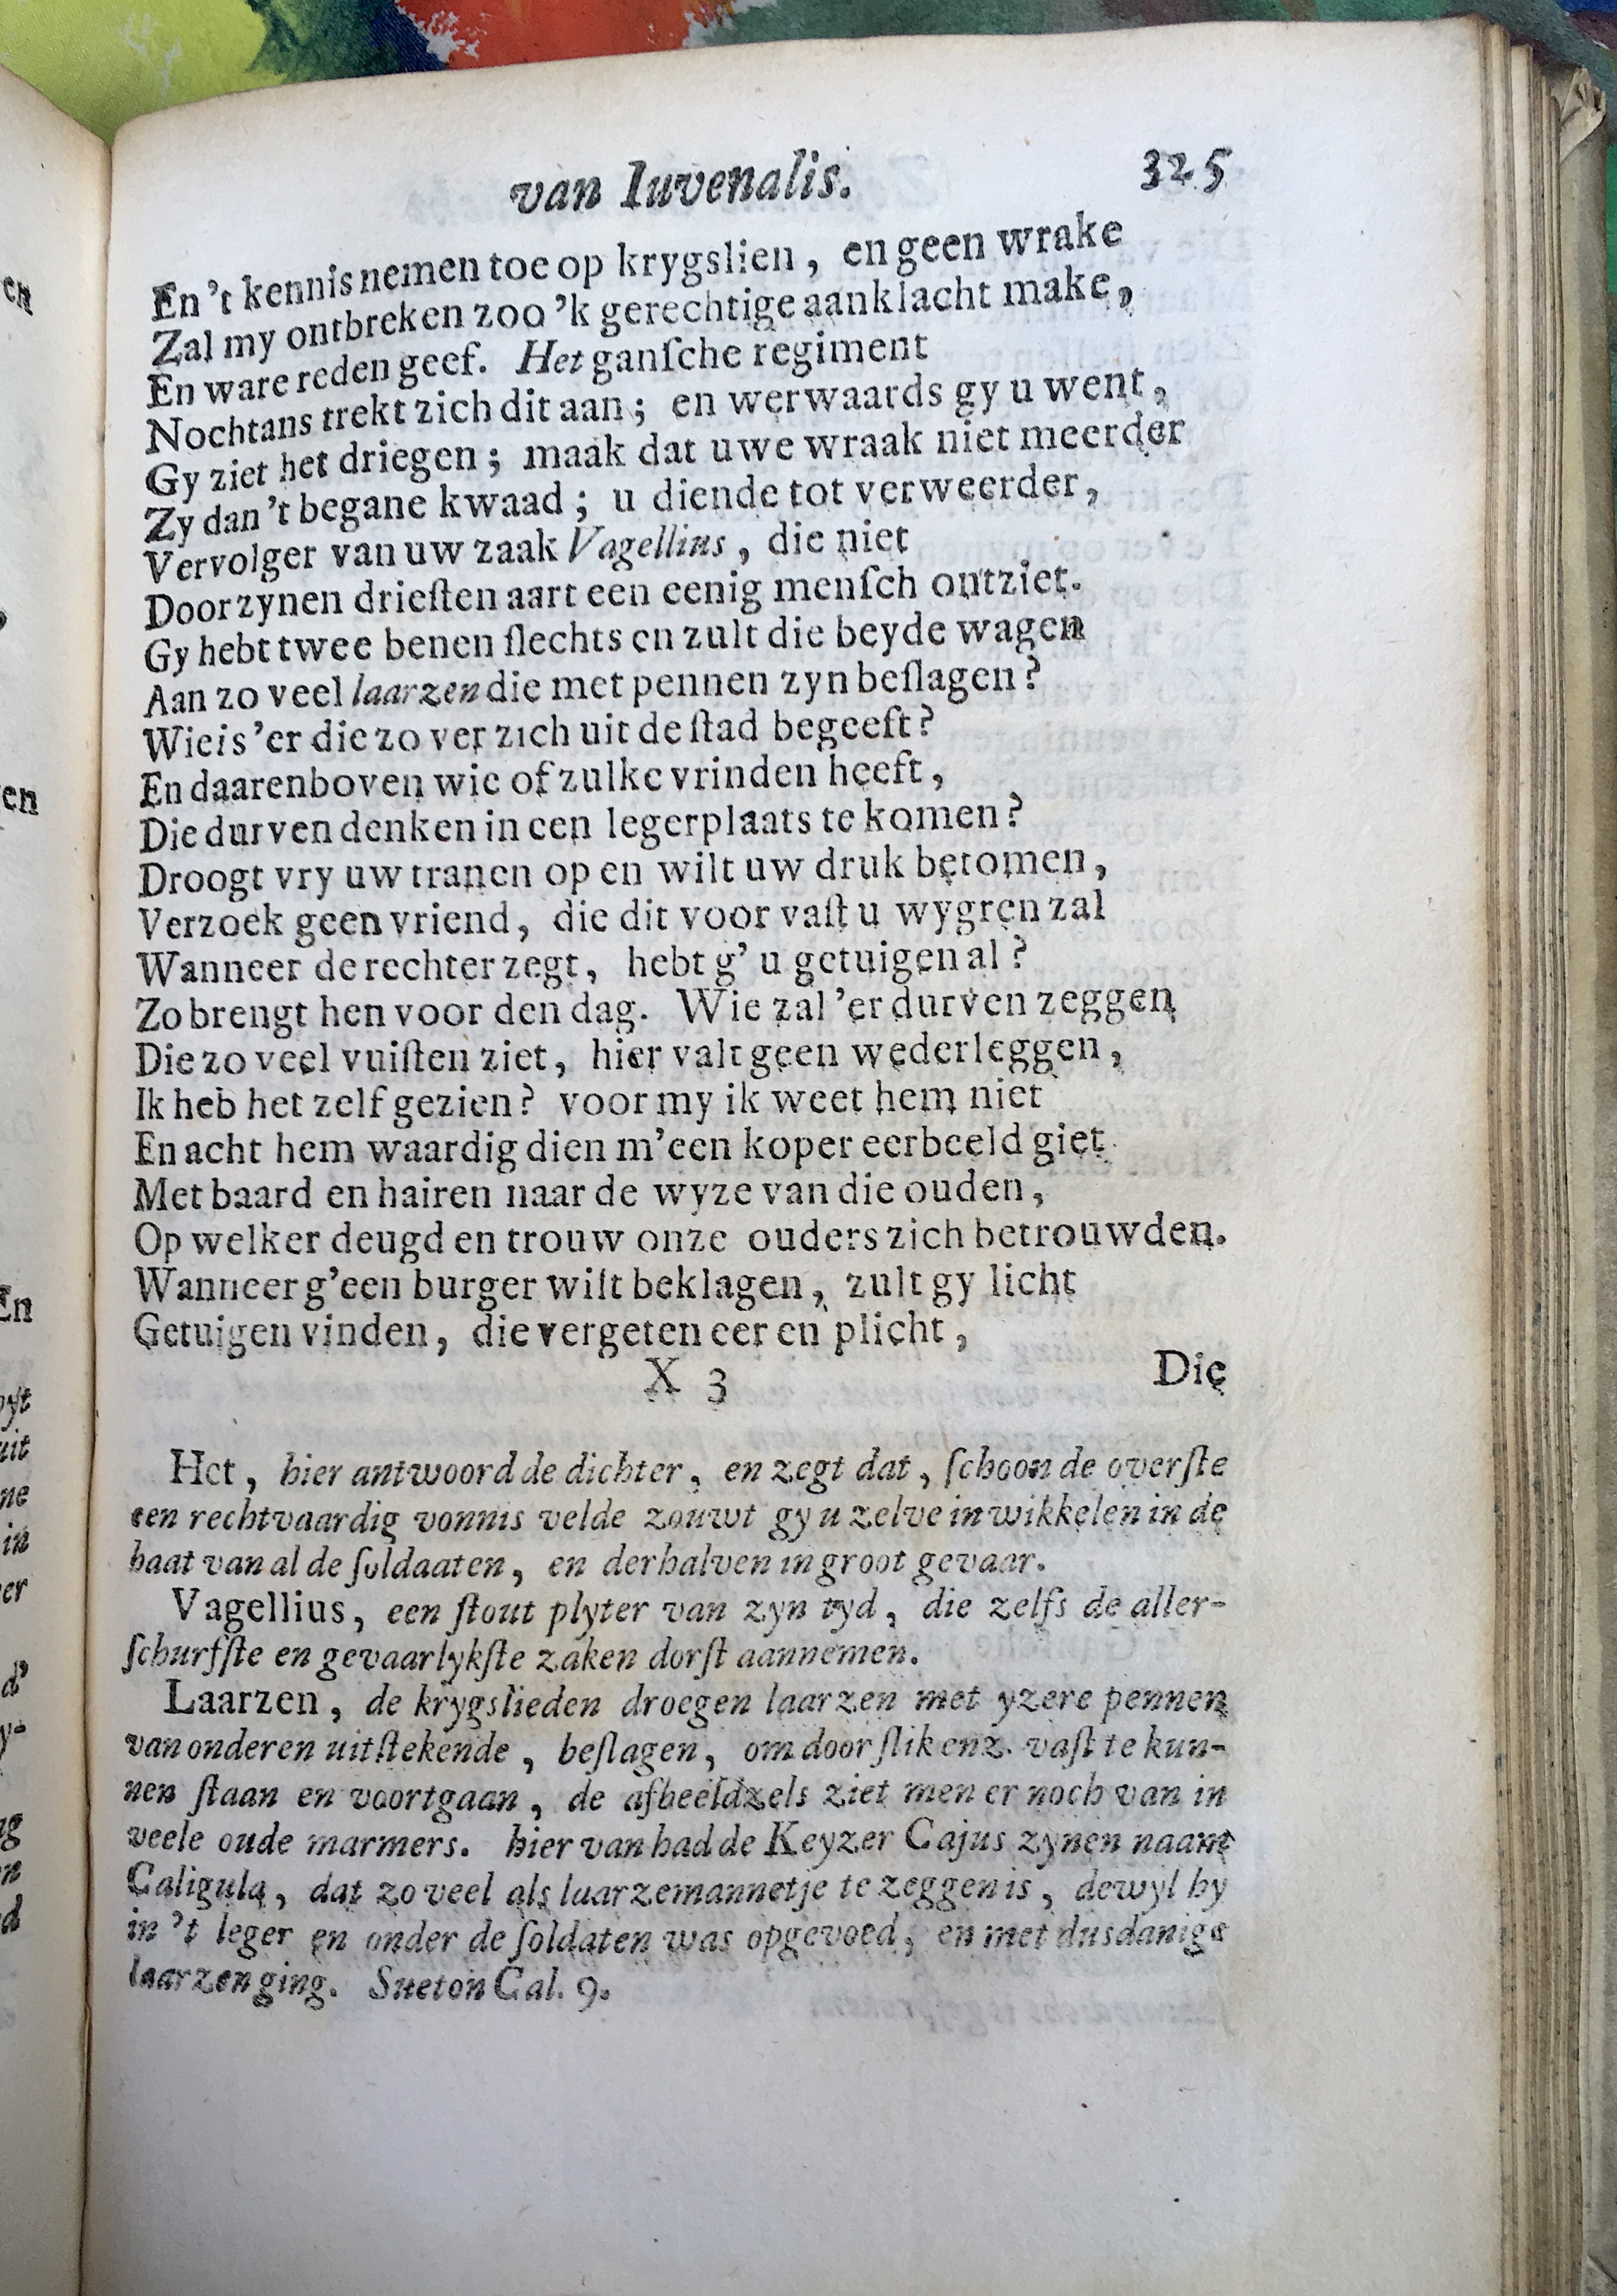 van Iuvenalis. 325
En 't kennisnemen toe op krygslien, en geen wrake
Zal my ontbreken zoo 'k gerechtige aanklacht make,
En ware reden geef. Het ganſche regiment
Nochtans trekt zich dit aan; en werwaards gy u went,
Gy ziet het driegen; maak dat uwe wraak niet meerder
Zy dan 't begane kwaad; u diende tot verweerder,
Vervolger van uw zaak Vagellius, die niet
Door zynen drieſten aart een eenig menſch ontziet.
Gy hebt twee benen ſlechts en zult die beyde wagen
Aan zo veel laarzen die met pennen zyn beſlagen?
Wie is 'er die zo ver zich uit de ſtad begeeft?
En daarenboven wie of zulke vrinden heeft,
Die durven denken in een legerplaats te komen?
Droogt vry uw tranen op en wilt uw druk betomen,
Verzoek geen vriend, die dit voor vaſt u wygren zal
Wanneer de rechter zegt, hebt g' u getuigen al?
Zo brengt hen voor den dag. Wie zal 'er durven zeggen
Die zo veel vuiſten ziet, hier valt geen wederleggen,
Ik heb het zelf gezien? voor my ik weet hem niet
En acht hem waardig dien m'een koper eerbeeld giet
Met baard en hairen naar de wyze van die ouden,
Op welker deugd en trouw onze ouders zich betrouwden.
Wanneer g'een burger wilt beklagen, zult gy licht
Getuigen vinden, die vergeten eer en plicht,
X 3 Die
Het, hier antwoord de dichter, en zegt dat, ſchoon de overſte
een rechtvaardig vonnis velde zouwt gy u zelve inwikkelen in de
haat van al de ſoldaaten, en derhalven in groot gevaar.
Vagellius, een ſtout plyter van zyn tyd, die zelfs de aller-
ſchurfſte en gevaarlykſte zaken dorſt aannemen.
Laarzen, de krygslieden droegen laarzen met yzere pennen
van onderen uitſtekende, beſlagen, om door ſlik enz. vaſt te kun-
nen ſtaan en voortgaan, de afbeeldzels ziet men er noch van in
veele oude marmers. hier van had de Keyzer Cajus zynen naam
Caligula, dat zo veel als laarzemannetje te zeggen is, dewyl hy
in 't leger en onder de ſoldaten was opgevoed, en met dusdanige
laarzen ging. Sueton Cal. 9.
en
en
En
yt
uit
ne
in
er
d'
y-
g
n
d